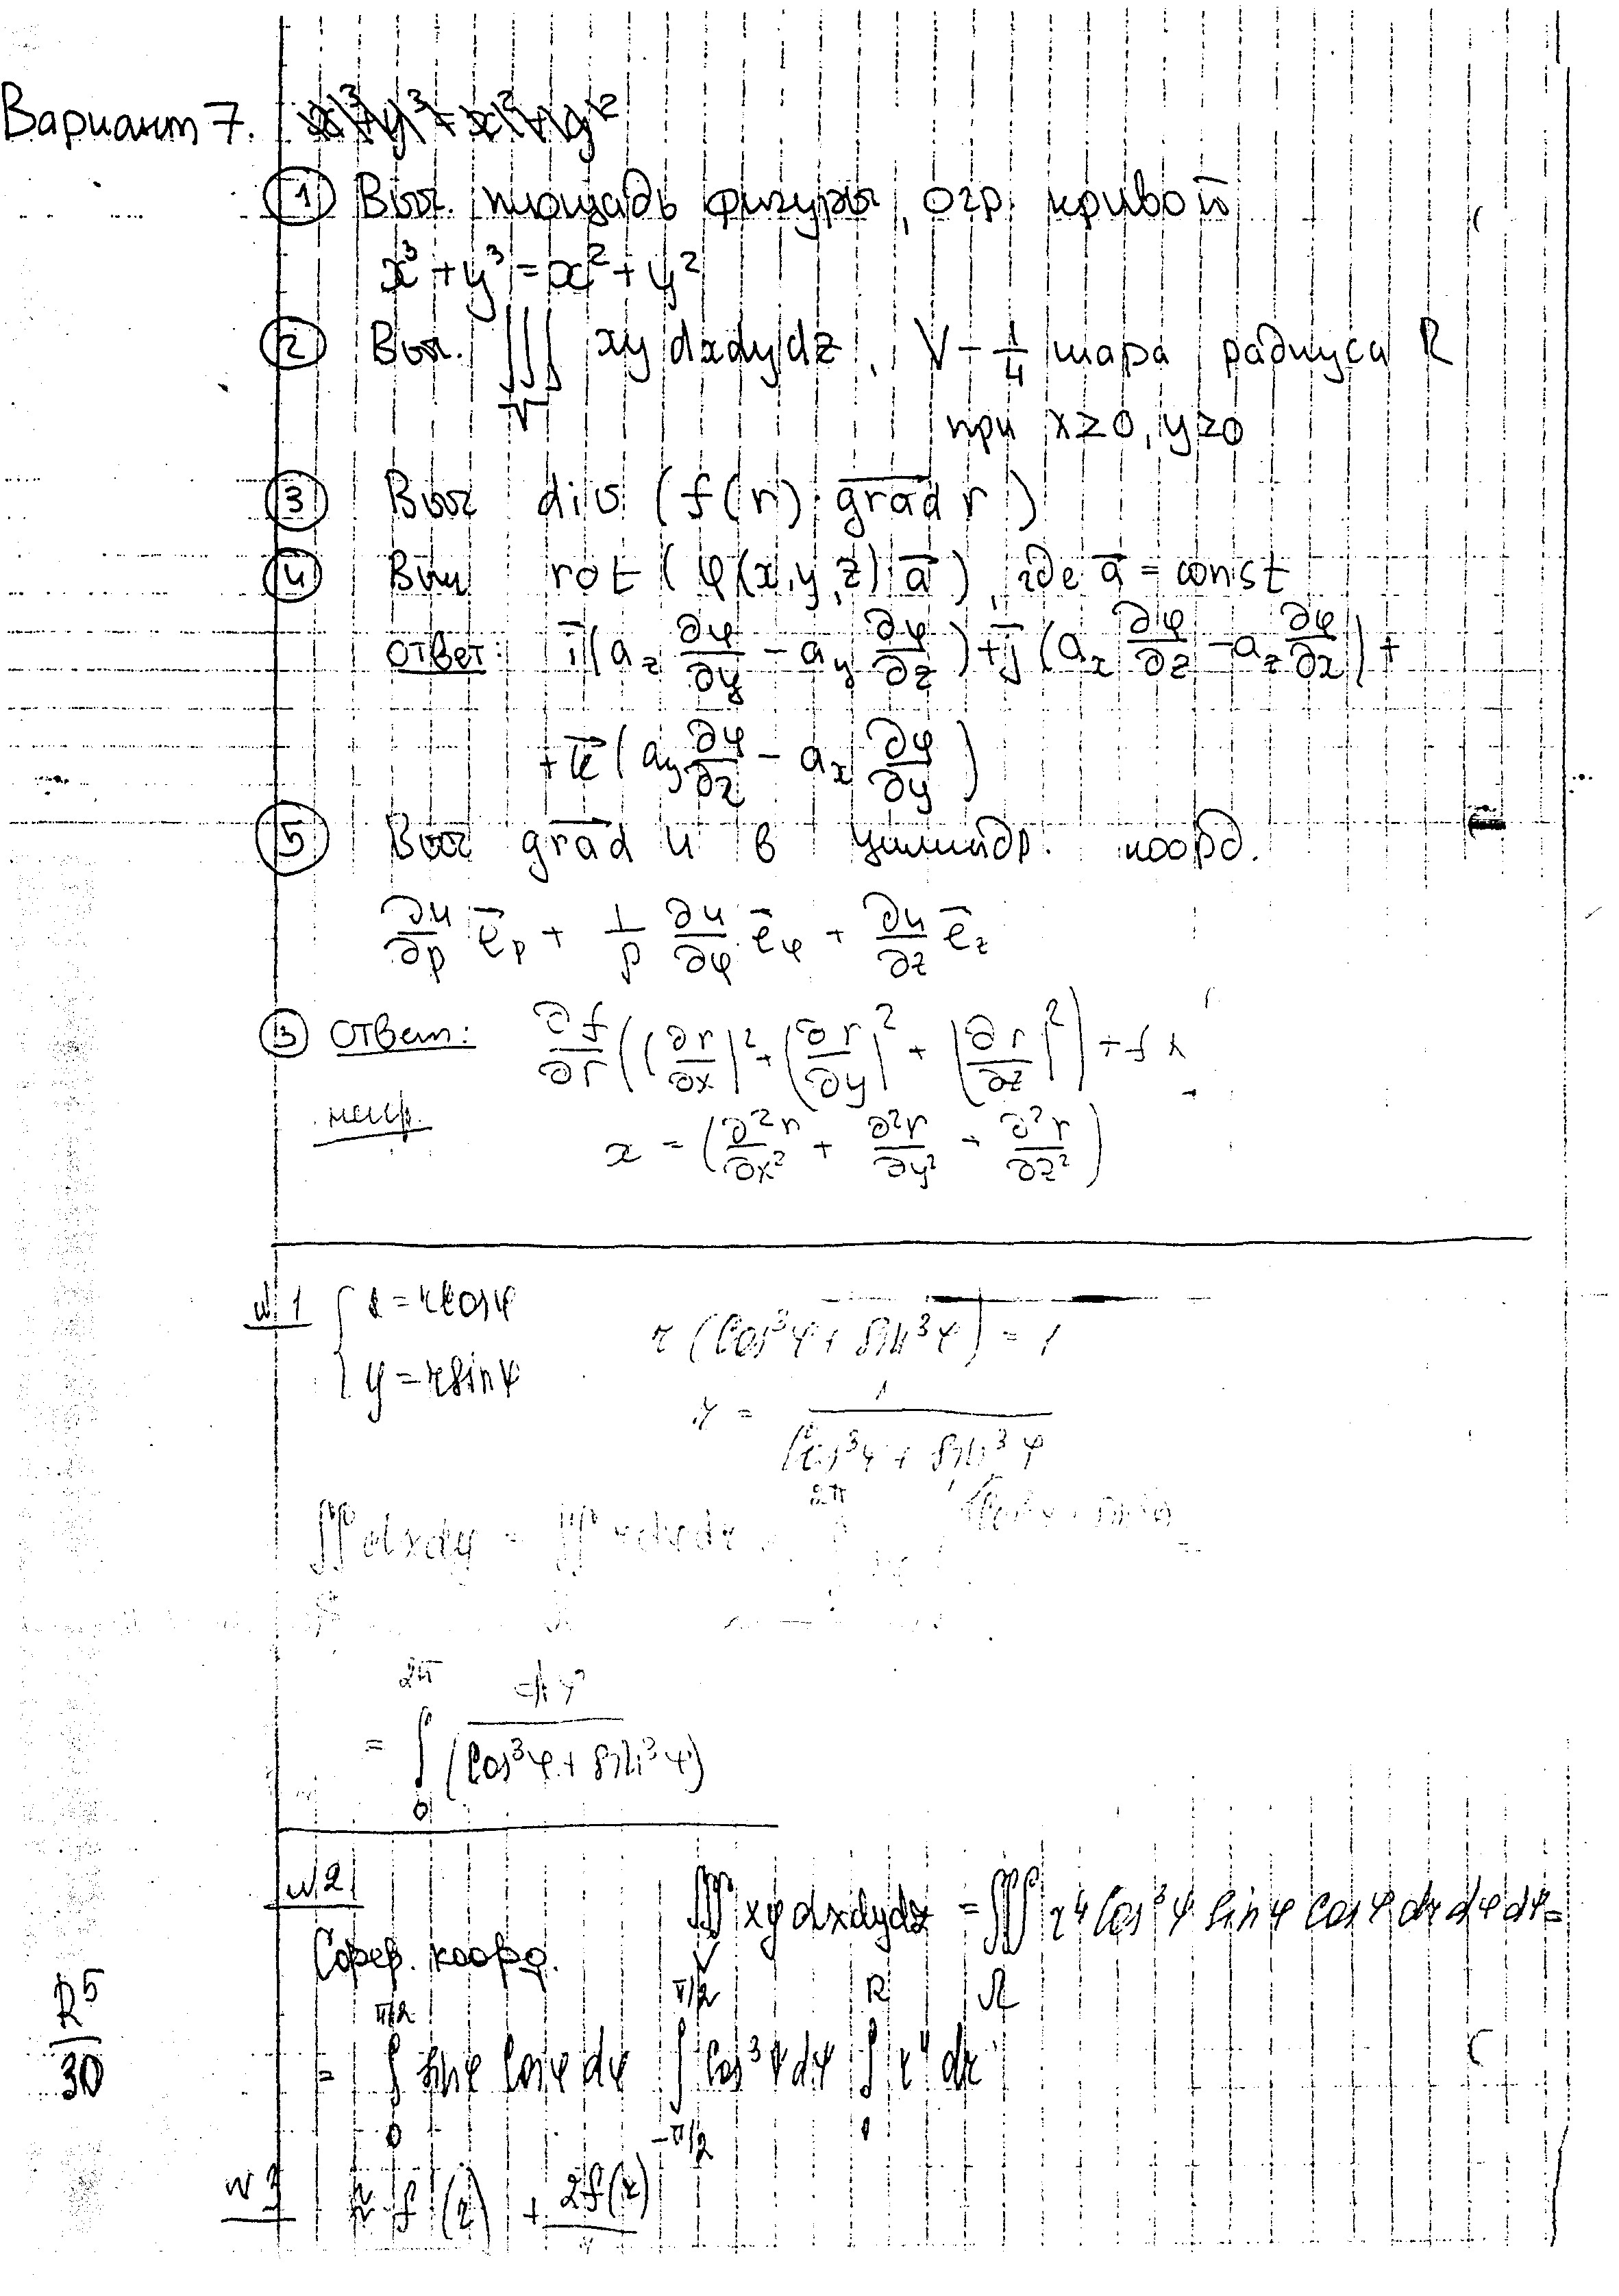 Вариант 7.
① Выч. площадь фигуры, огр. кривой
x³ + y³ = x² + y²
② Выч. ∭_V xy dxdydz, V – 1/4 шара радиуса R
при x≥0, y≥0
③ Выч div (f(r) · grad r)
④ Выч rot (φ(x,y,z) a⃗), где a⃗ = const
ответ: i (a_z ∂φ/∂y − a_y ∂φ/∂z) + j (a_x ∂φ/∂z − a_z ∂φ/∂x) +
+ k (a_y ∂φ/∂z − a_x ∂φ/∂y)
⑤ Выч grad u в цилиндр. коорд.
∂u/∂ρ e_ρ + 1/ρ ∂u/∂φ e_φ + ∂u/∂z e_z
③ Ответ: ∂f/∂r ((∂r/∂x)² + (∂r/∂y)² + (∂r/∂z)²) + f x
x = (∂²r/∂x² + ∂²r/∂y² + ∂²r/∂z²)
N1 { x = r cosφ
y = r sinφ
r (cos³φ + sin³φ) = 1
r = 1/(cos³φ + sin³φ)
∬ dxdy =
2π
= ∫₀^{2π} dφ/(cos³φ + sin³φ)
N2 ∭_V xy dxdydz = ∭_Ω r⁴ cos³ψ sinφ cosφ dr dφ dψ =
Сфер. коорд.
= ∫₀^{π/2} sinφ cosφ dφ ∫_{-π/2}^{π/2} cos³ψ dψ ∫₀^R r⁴ dr
R⁵/30
N3 f (r) + 2f(r)/r